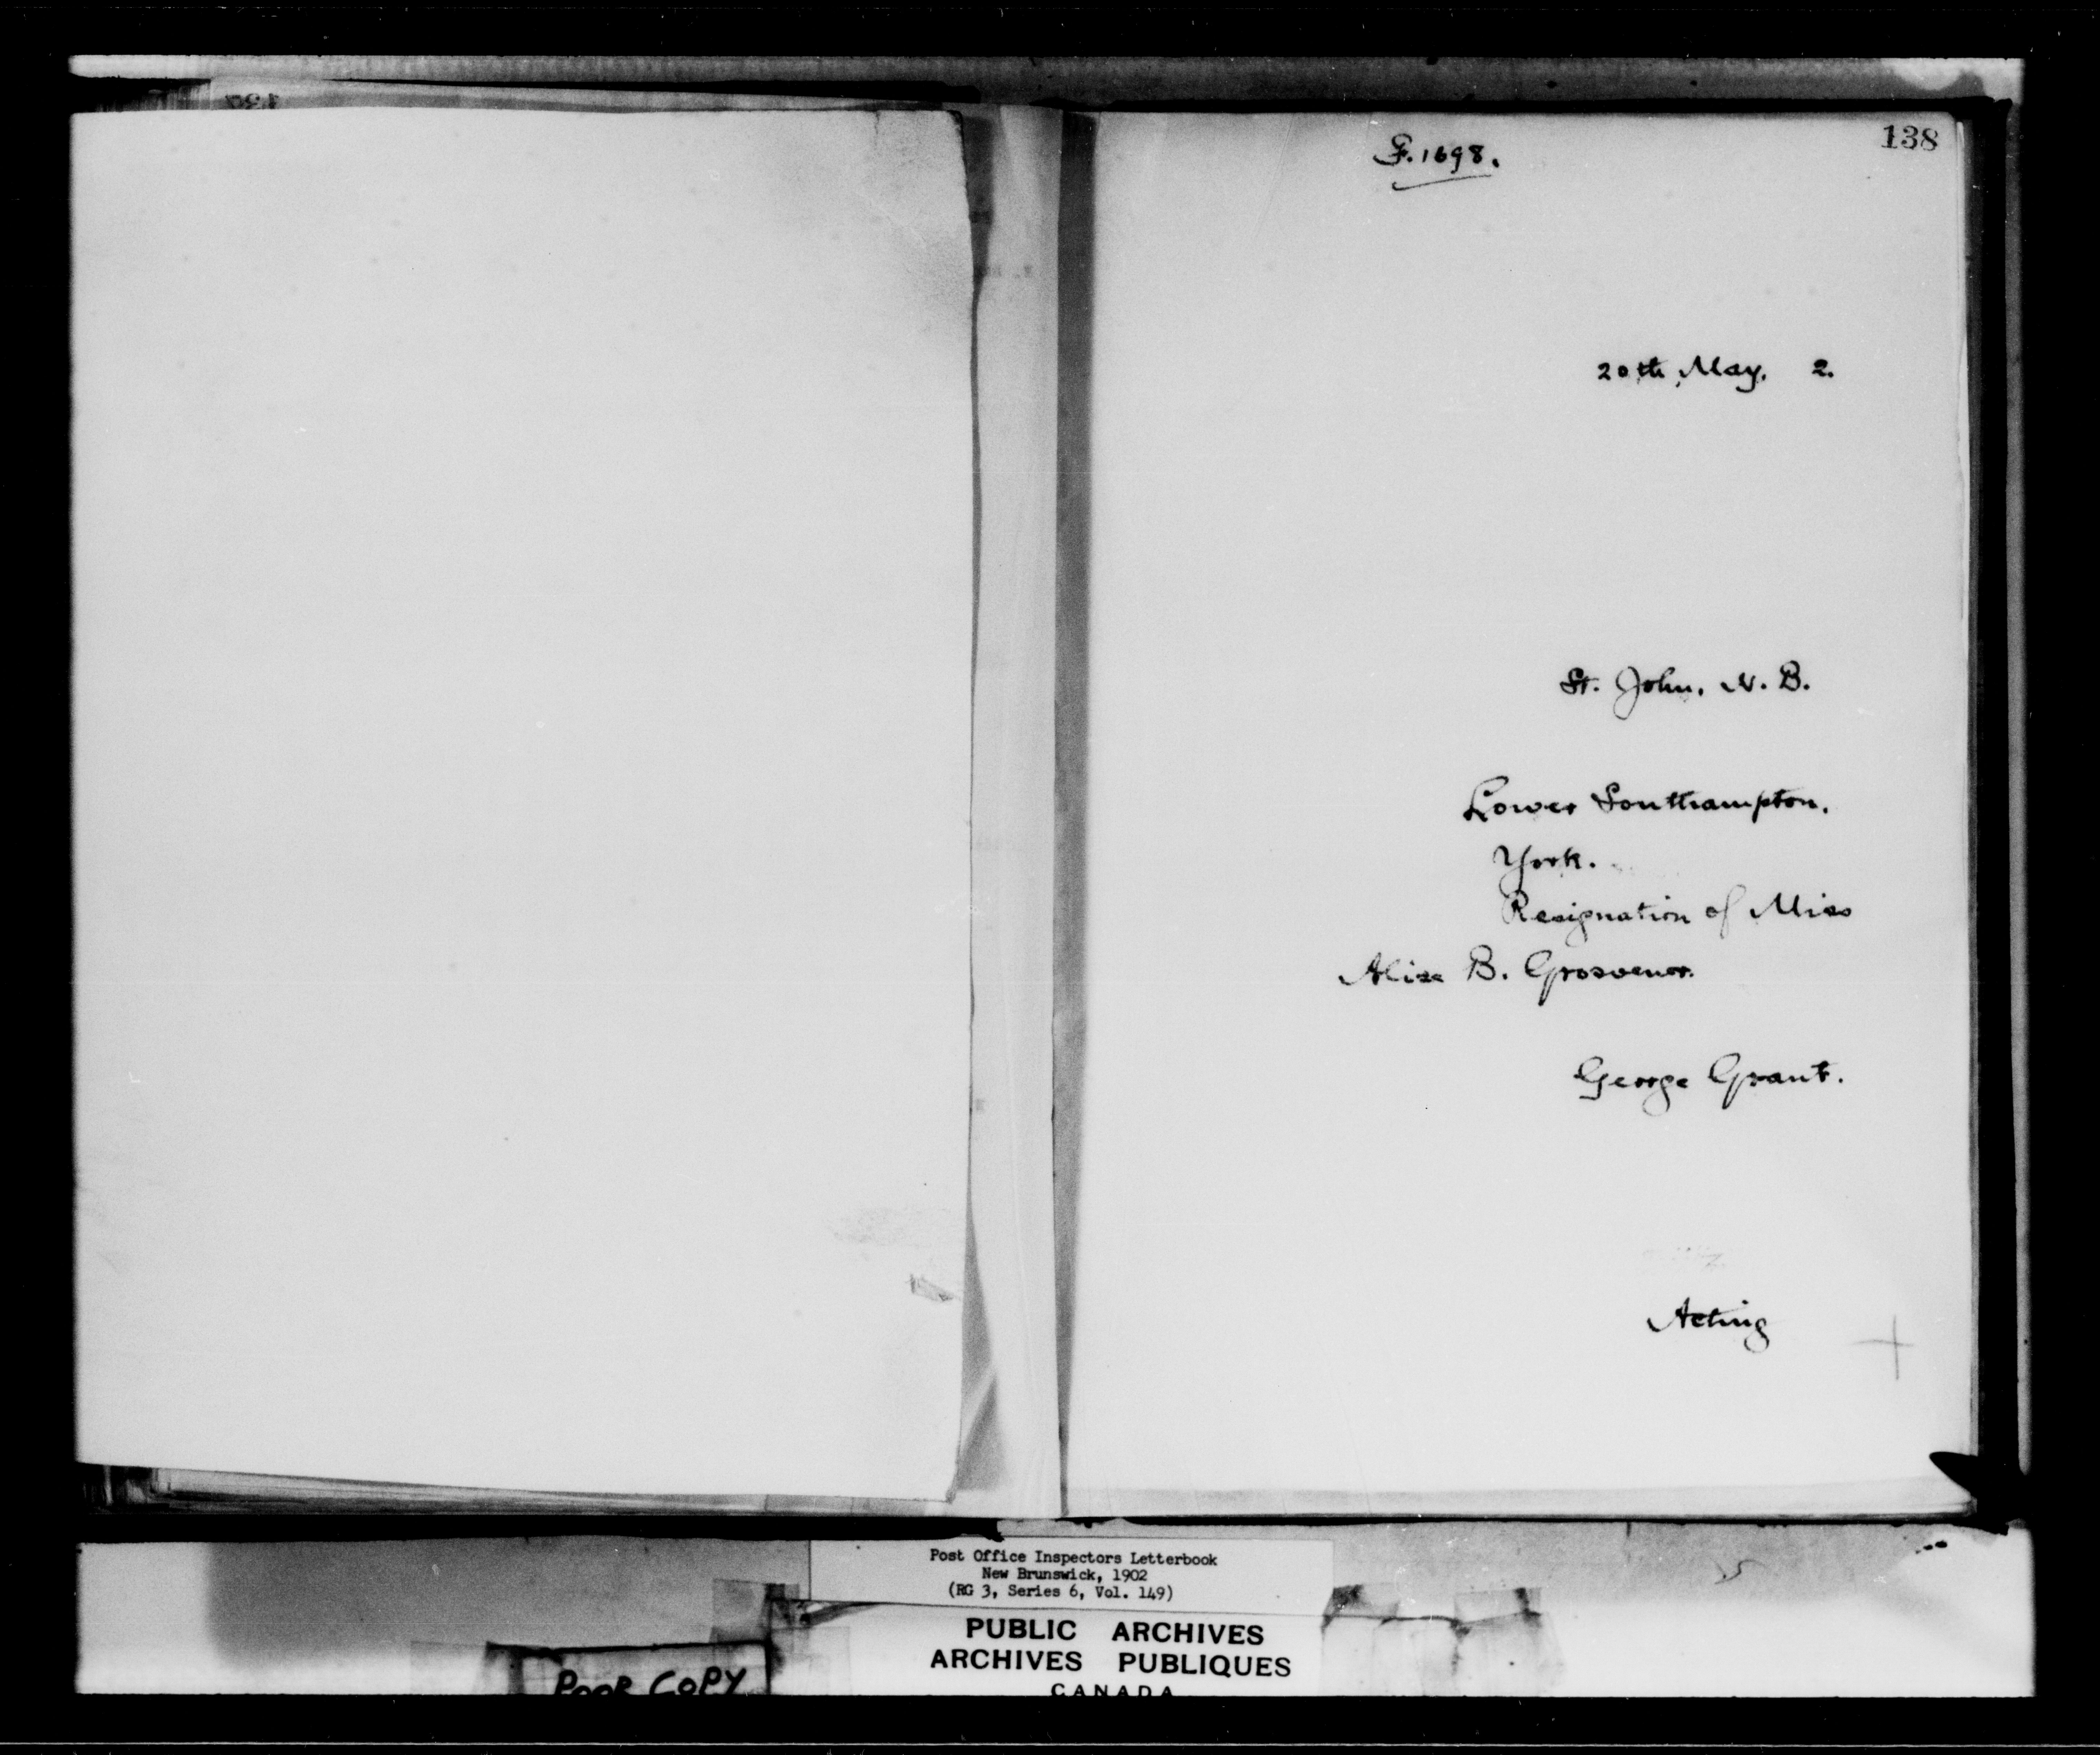 138
F. 1698.
20th May, 2.
St. John, N. B.
Lower Southampton,
York.
Resignation of Miss
Alize B. Grosvenor.
George Grant.
Acting
Post Office Inspectors Letterbook
New Brunswick, 1902
(RG 3, Series 6, Vol. 149)
PUBLIC ARCHIVES
ARCHIVES PUBLIQUES
CANADA
POOR COPY